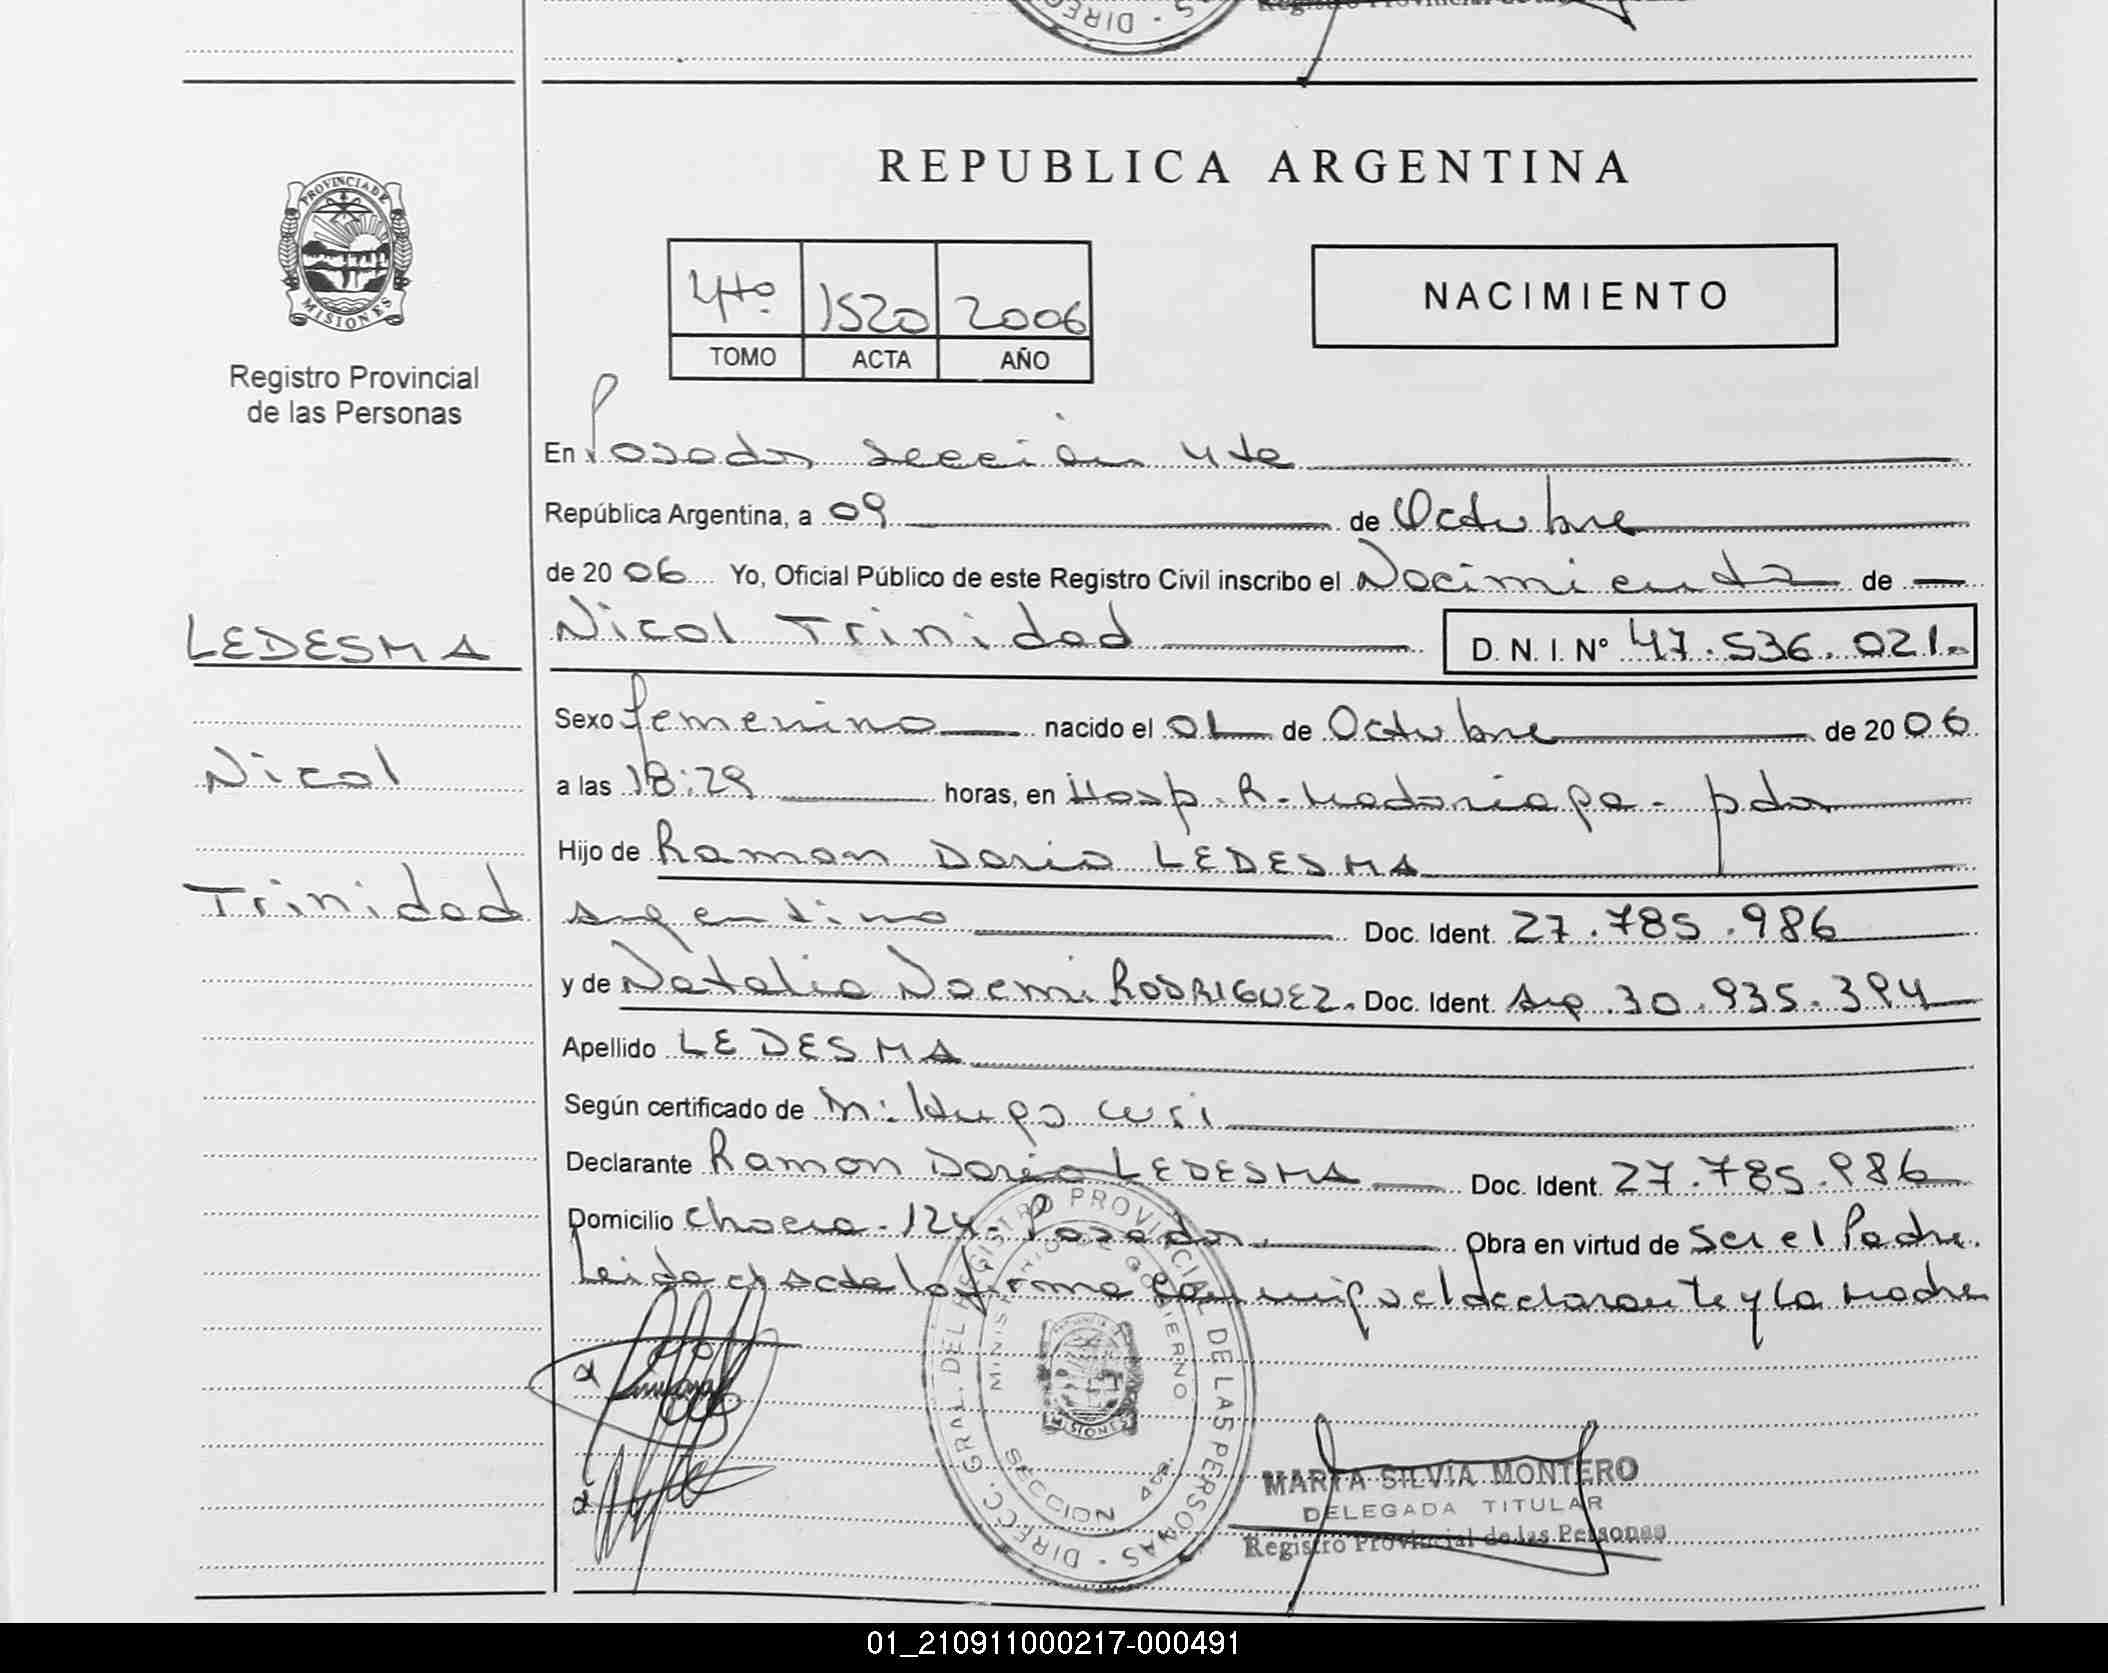 REPUBLICA ARGENTINA
PROVINCIA DE
MISIONES
Registro Provincial
de las Personas
4to. 1520 2006
TOMO ACTA AÑO
NACIMIENTO
En Posadas sección 4ta
República Argentina, a 09 de Octubre
de 2006 Yo, Oficial Público de este Registro Civil inscribo el Nacimiento de
LEDESMA
Nicol Trinidad
D. N. I. Nº 47.536.021.
Sexo femenino nacido el 01 de Octubre de 2006
Nicol
a las 18:29 horas, en Hosp. R. Madariaga - pdas
Hijo de Ramon Dario LEDESMA
Trinidad
argentino Doc. Ident. 27.785.986
y de Natalia Noemi RODRIGUEZ. Doc. Ident. Arg. 30.935.394
Apellido LEDESMA
Según certificado de Hugo
Declarante Ramon Dario LEDESMA Doc. Ident. 27.785.986
Domicilio Chacra - 124 - Posadas. Obra en virtud de ser el Padre.
Leida el acta la firma conmigo el declarante y la madre
DIRECC. GRAL. DEL REGISTRO PROVINCIAL DE LAS PERSONAS
MINISTERIO DE GOBIERNO
SECCION 4ta.
MARTA SILVIA MONTERO
DELEGADA TITULAR
Registro Provincial de las Personas
01_210911000217-000491